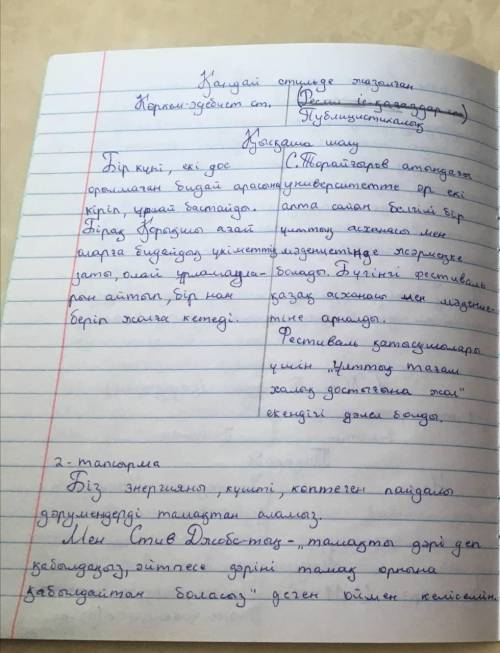 Қандай стильде жазылған
Көркем-әдебиет ст. (Ресми іс-қағаздар)
Публицистикалық
Қысқаша шолу
Бір күні, екі дос С. Торайғыров атындағы
орылмаған бидай арасына университетте әр екі
кіріп, ұрлай бастайды. апта сайын белгілі бір
Бірақ Қорықшы ағай ұлттық асханасы мен
оларға бидайдың үкіметтү мәдениетінде жәрмеңке
заты, олай ұрламаула- болады. Бүгінгі фестиваль
рын айтып, бір нан қазақ асханасы мен мәдение-
беріп жолға кетеді. тіне арналды.
Фестиваль қатысушылары
үшін "Ұлттық тағам
халық достығына жол"
екендігі дәлел болды.
2-тапсырма
Біз энергияны, күшті, көптеген пайдалы
дәрумендерді тамақтан аламыз.
Мен Стив Джобс-тың - "тамақты дәрі деп
қабылдаңыз, әйтпесе дәріні тамақ орнына
қабылдайтын боласыз" деген оймен келісемін.